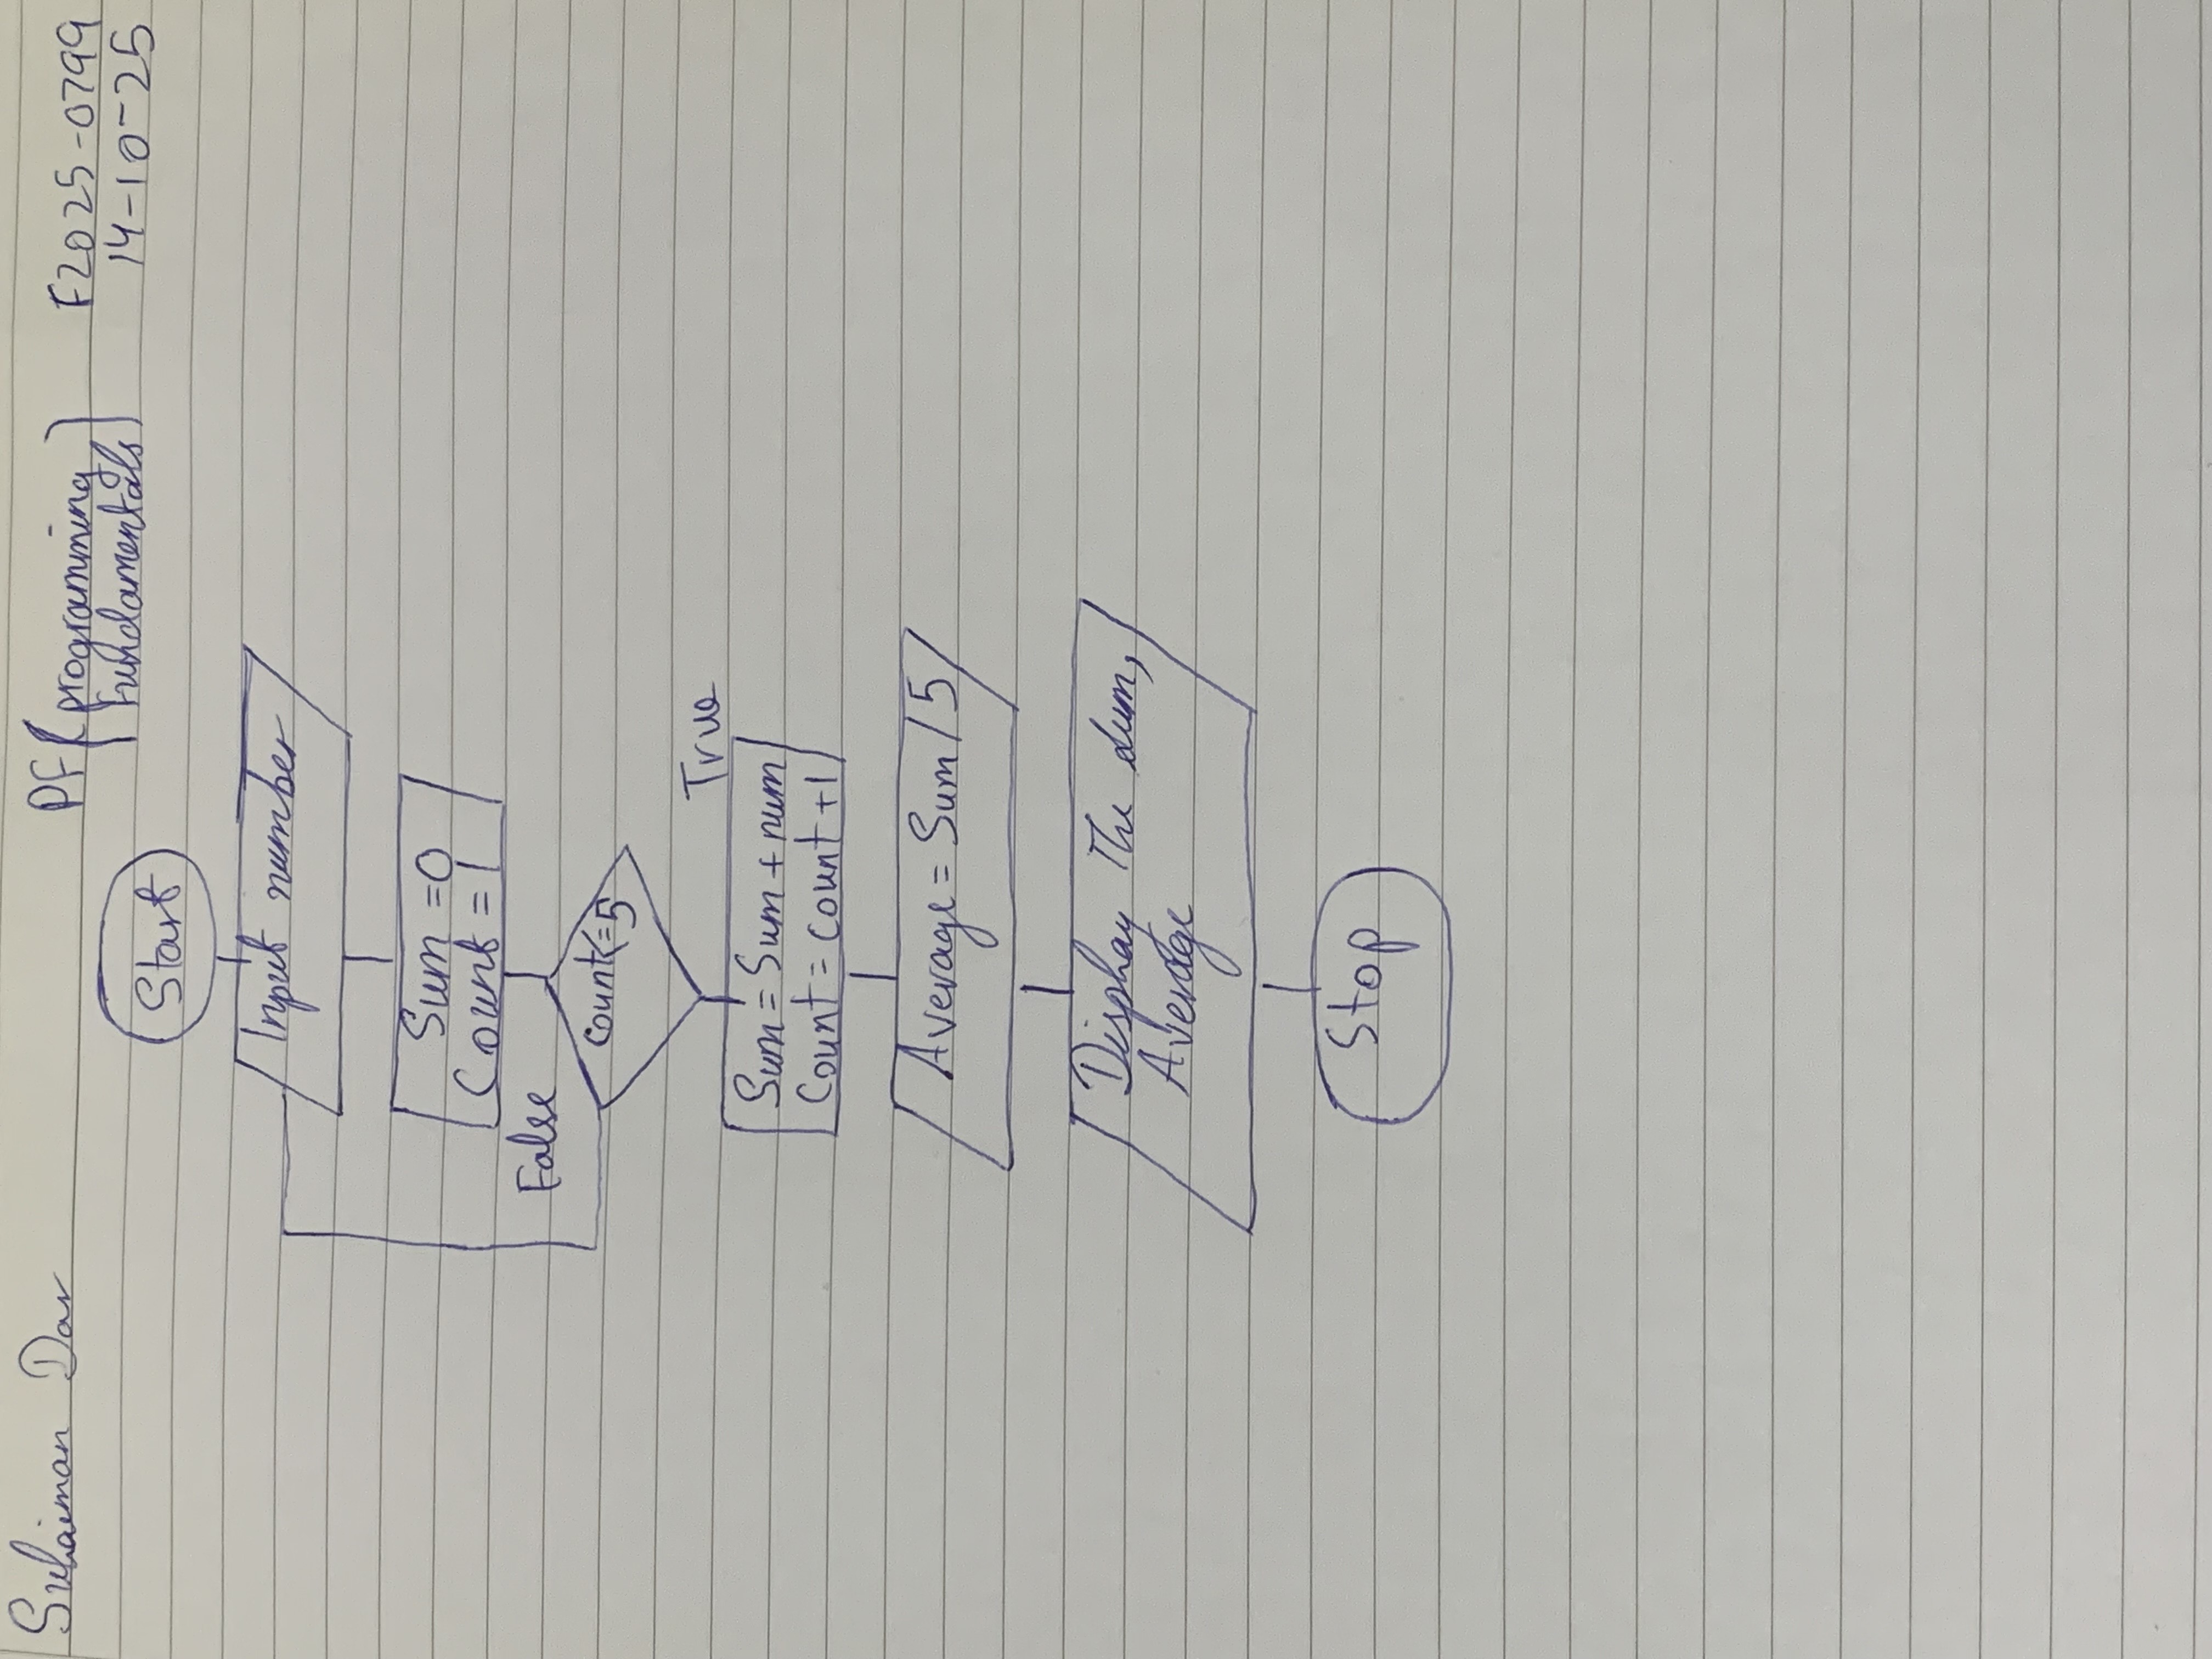 Suhaiman Dar
PF (programming
Fundamentals)
F2025-0799
14-10-25
Start
Input number
Sum =0
Count = 1
False
count<=5
True
Sum = Sum + num
Count = count +1
Average = Sum / 5
Display The sum,
Average
Stop